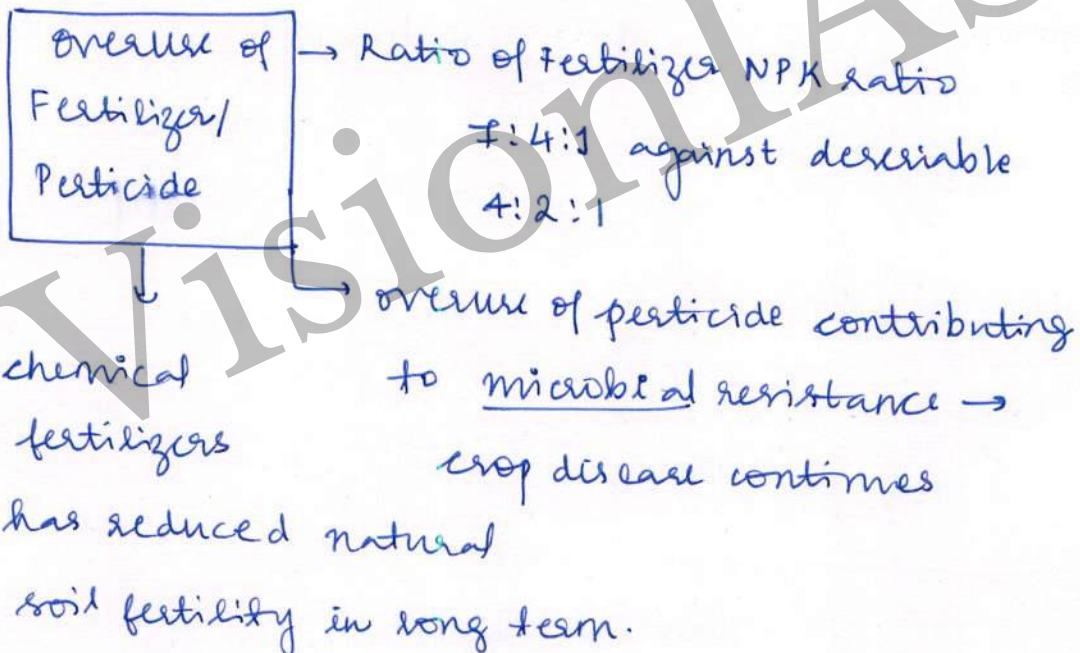 overuse of
Fertilizer/
Pesticide
→ Ratio of Fertilizer NPK ratio
7:4:1 against deseriable
4:2:1
→ overuse of pesticide contributing
to microbial resistance →
crop disease continues
↓
chemical
fertilizers
has reduced natural
soil fertility in long term.
VisionIAS